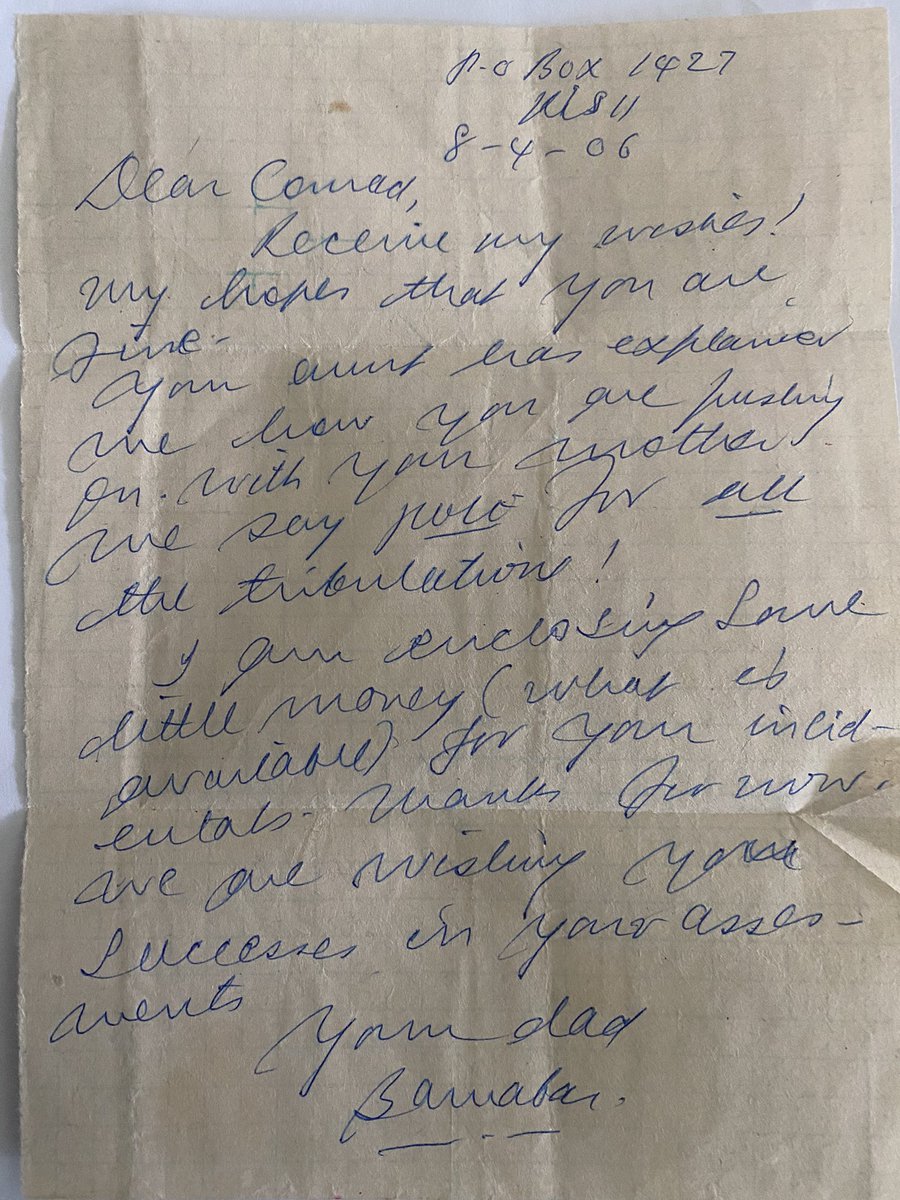 P.O Box 1427
KISII
8-4-06
Dear Conrad,
Receive my wishes!
My hopes that you are
fine.
Your aunt has explained
me how you are pushing
on. With your mother
we say pole for all
the tribulations!
I am enclosing some
little money (what is
available) for your incid-
entals. Thanks for now.
We are wishing you
successes in your asses-
ments
Your dad
Barnabas.